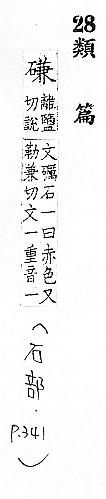 28 類篇
磏
離鹽
切說
文礪石一曰赤色又
勒兼切文一重音一
(石部. p.341)